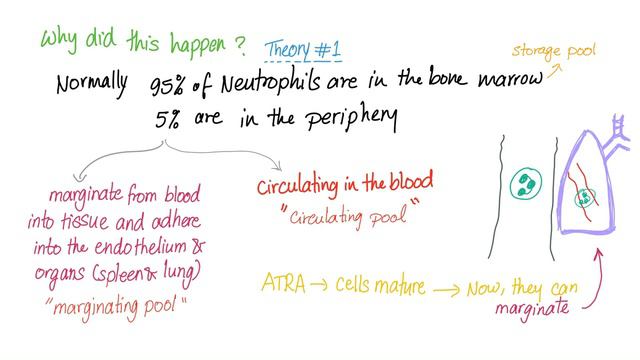 Why did this happen ? Theory #1
storage pool
Normally 95% of Neutrophils are in the bone marrow
5% are in the periphery
marginate from blood
into tissue and adhere
into the endothelium &
organs (spleen & lung)
"marginating pool"
circulating in the blood
"Circulating pool"
ATRA → cells mature → Now, they can
marginate